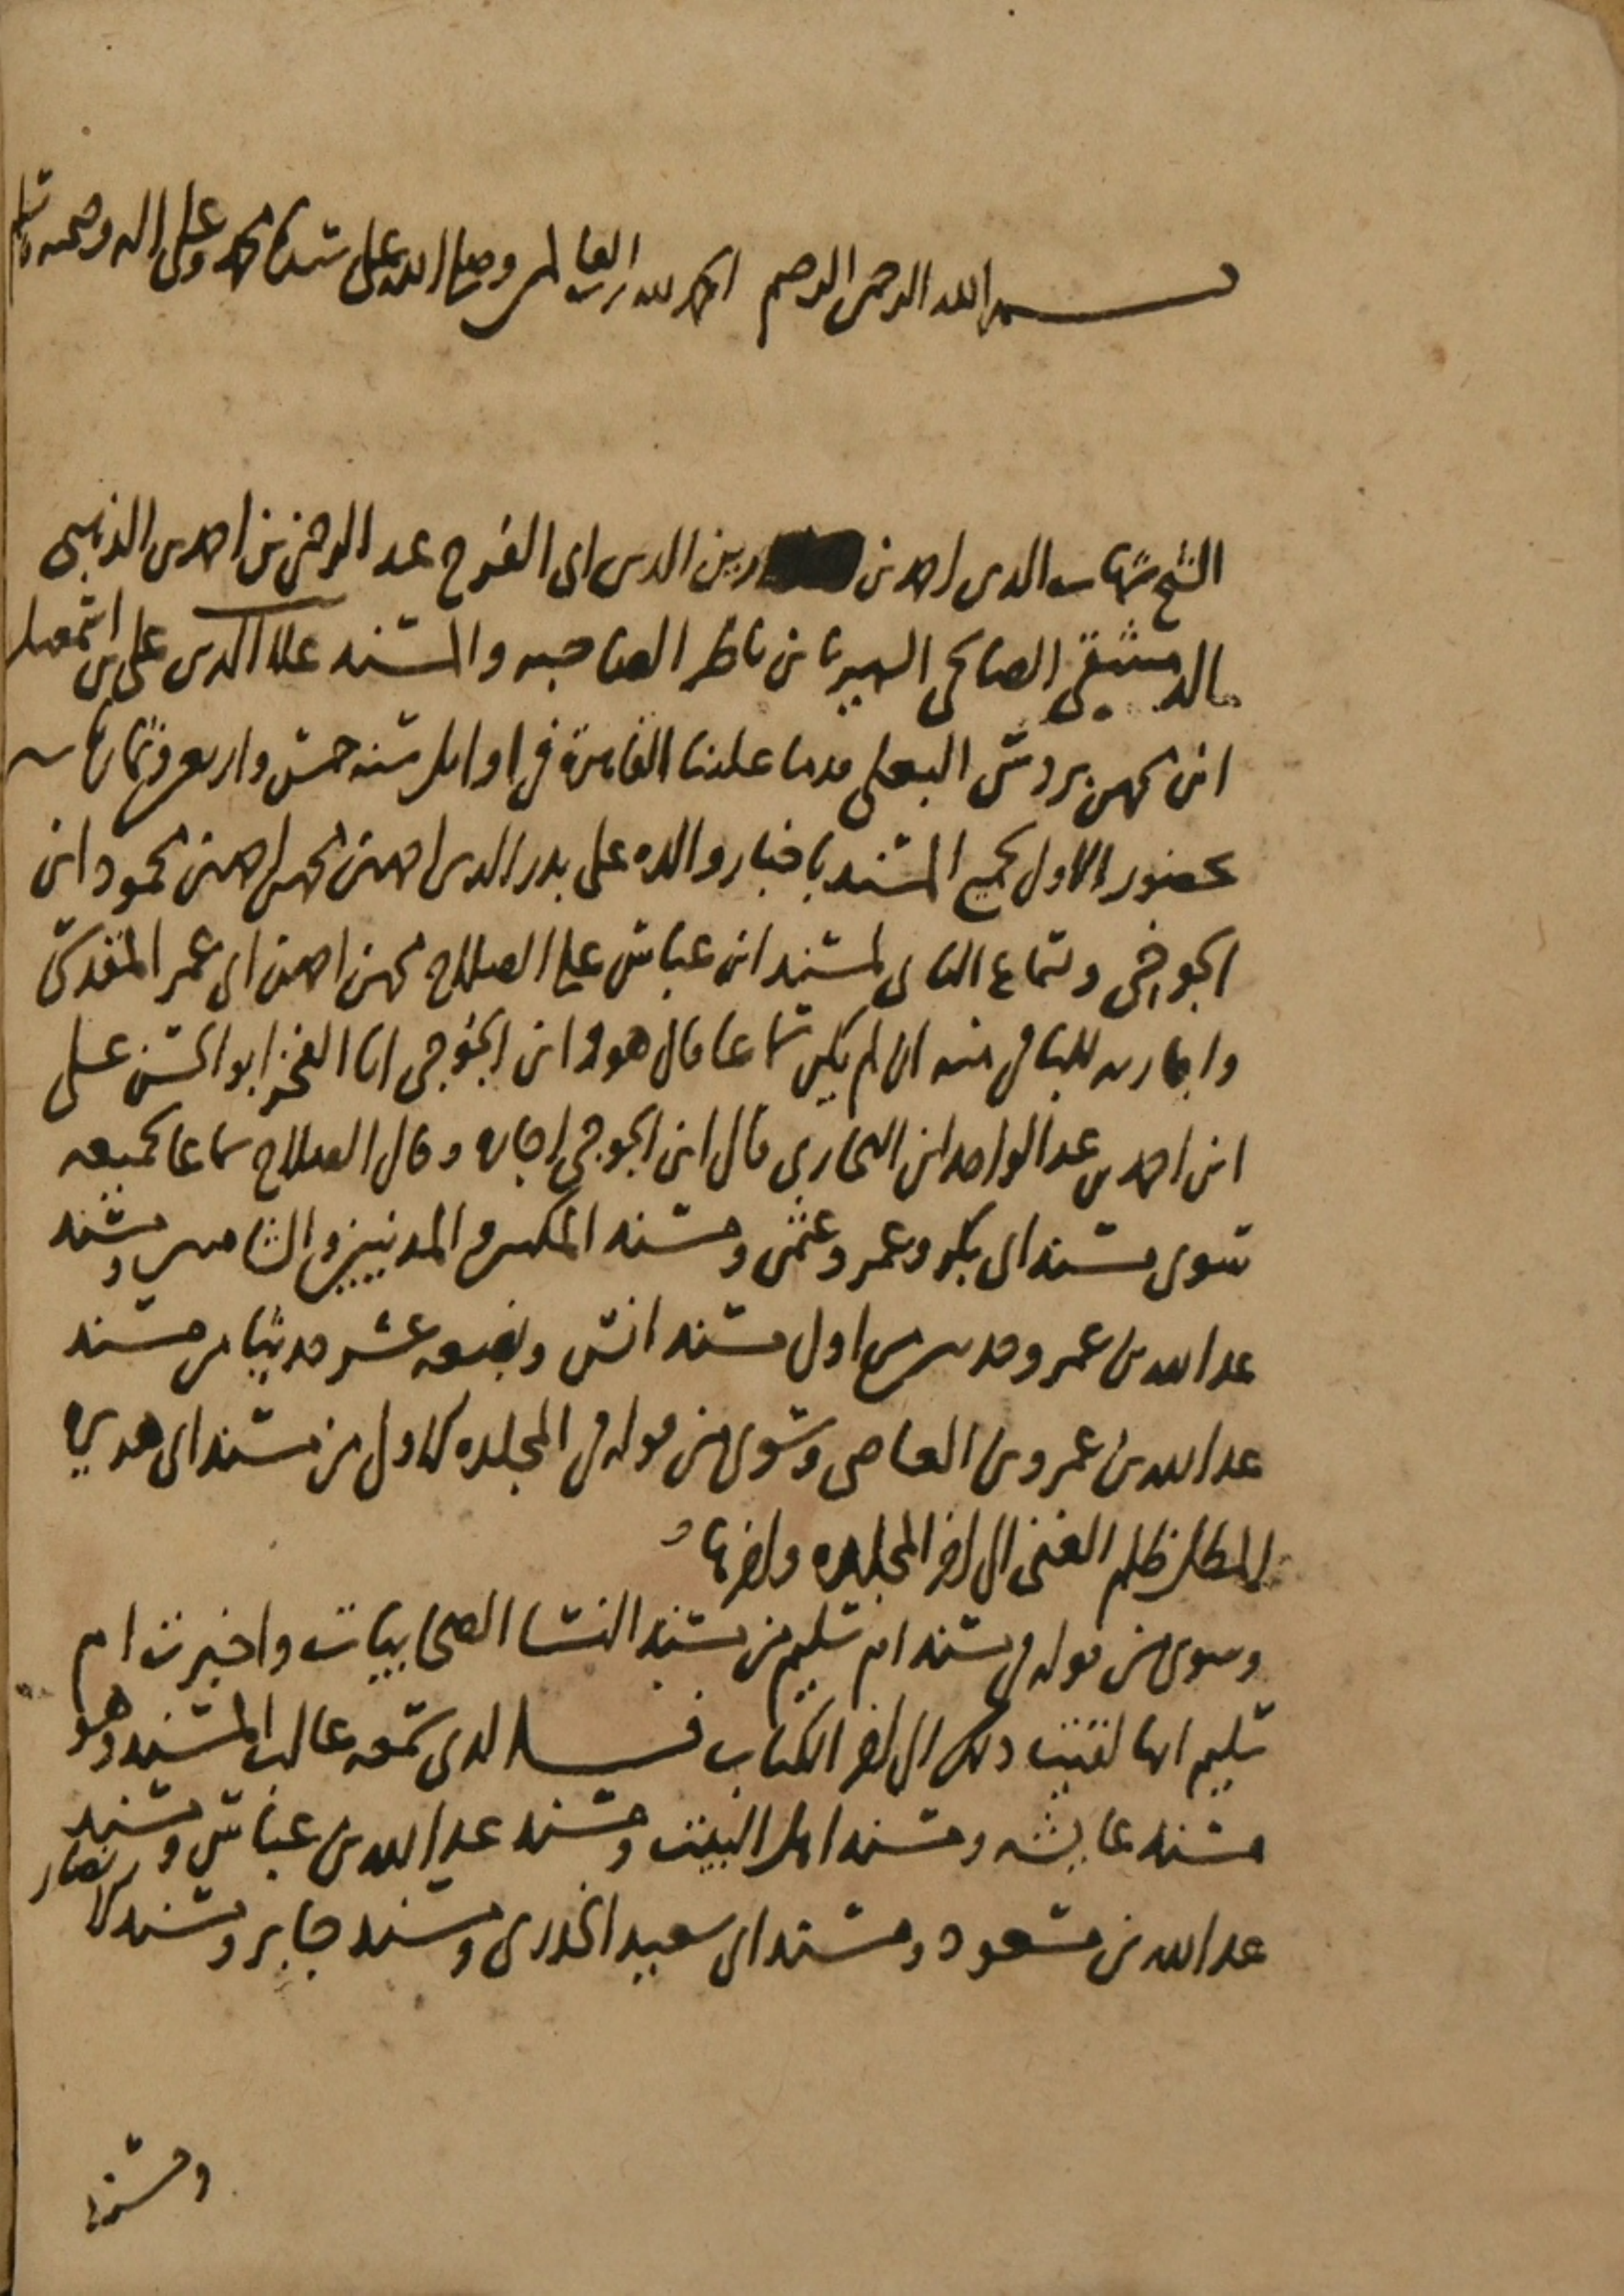 بسم الله الرحمن الرحيم الحمد لله رب العالمين وصلى الله على سيدنا محمد وعلى اله وصحبه وسلم
الشيخ شهاب الدين احمد بن زين الدين ابي الفرج عبد الرحمن بن احمد بن الذهبي
الدمشقي الصالحي الشهير بابن ناظر الصاحبه والمسند علاء الدين علي بن اسمعيل
ابن محمد بن بردس البعلي قدما علينا القاهرة في اوايل سنه خمس واربعين وثمان مايه
بحضور الاول لجميع المسند باخبار والده على بدر الدين احمد بن محمد بن احمد بن محمود ابن
الجوخي وبسماع الثاني لمسند ابن عباس على الصلاح محمد بن احمد بن ابي عمر المقدسي
واجازته للباقي منه ان لم يكن سماعا قال هو وابن الجوخي انا الفخر ابو الحسن علي
ابن احمد بن عبد الواحد ابن البخاري قال ابن الجوخي اجازه وقال الصلاح سماعا لجميعه
سوى مسند ابي بكر وعمر وعثمن ومسند المكيين والمدنيين والشاميين ومسند
عبد الله بن عمر وحديثين من اول مسند انس وبضعه عشر حديثا من مسند
عبد الله بن عمرو بن العاصي وسوى من قوله في المجلده الاول من مسند ابي هريره
المطل ظلم الغني الى اخر المجلده واخرها
وسوى من قوله في مسند ام سليم من مسند النسا الصحابيات واخبرت ام
سليم انها لقيت ذلك الى اخر الكتاب الذي سمعه غالب المسند وهو
مسند عايشه ومسند اهل البيت ومسند عبد الله بن عباس ومسند
عبد الله بن مسعود ومسند ابي سعيد الخدري ومسند جابر ومسند الانصار
ومسند